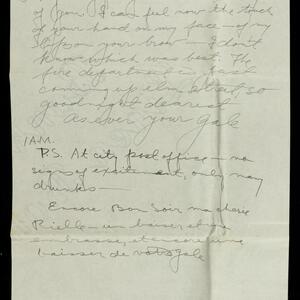 of you. I can feel now the touch
of your hand on my face - of my
lips on your brow - I don't
know which was best. The
fire department is
coming up elm street so
goodnight dearest
As ever your Gale
1 A.M.
P.S. At city post office - no
signs of excitement, only many
drunks -
Encore Bon Soir ma chere
un baiser et
embrasse, et encore une
baisser de Gale